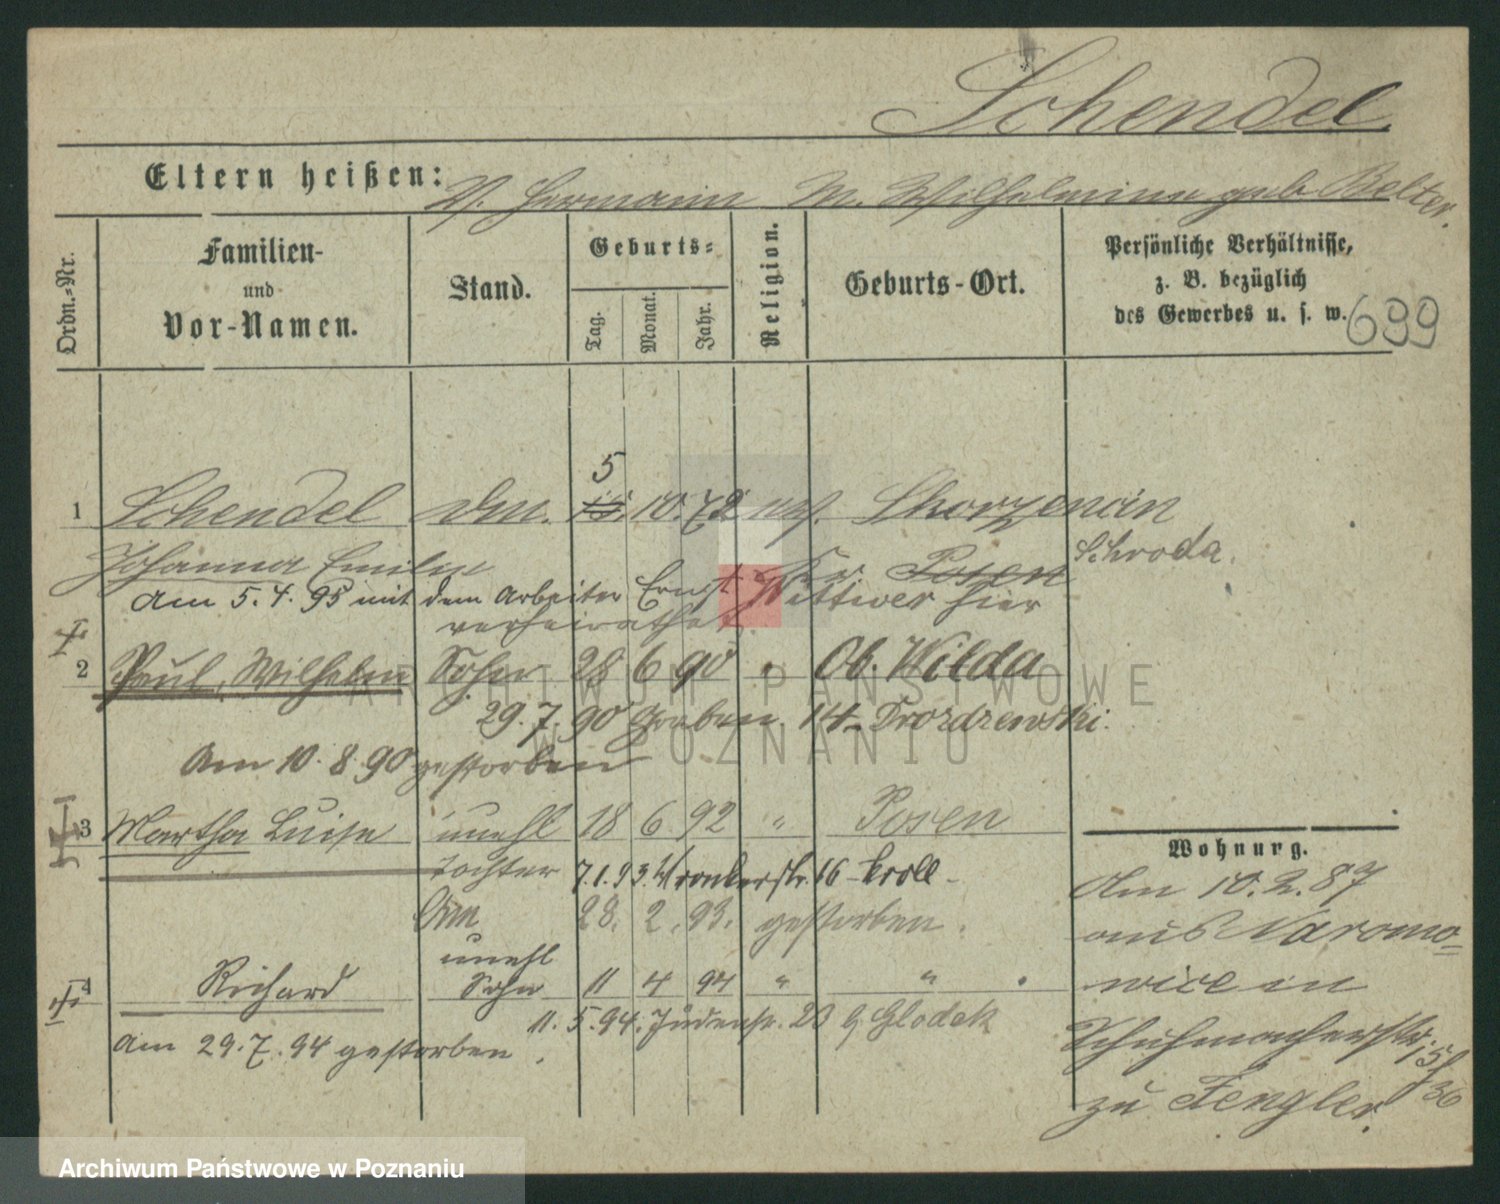 Schendel.
Eltern heißen: V. Hermann M. Wilhelmine geb. Belter.
Ordn.-Nr.
Familien-
und
Vor-Namen.
Stand.
Geburts-
Tag.
Monat.
Jahr.
Religion.
Geburts-Ort.
Persönliche Verhältnisse,
z. B. bezüglich
des Gewerbes u. s. w.
699
5
1 Schendel 10. 72 Skorzencin
Johanna Emilie Kr. Posen Schroda.
Am 5. 4. 95 mit dem Arbeiter Ernst Wittwer hier
verheirathet
2 Paul, Wilhelm Sohn 28 6 90 " Ob. Wilda
29. 7. 90 Graben 14 Drozdzewski.
Am 10. 8. 90 gestorben
3 Martha Luise unehl 18 6 92 " Posen
Tochter 7. 1. 93. Wronkerstr. 16 - Kroll -
Am 28. 2. 93. gestorben.
unehl
4 Richard Sohn 11 4 94 " "
11. 5. 94. Judenstr. 20 b. Glodek
Am 29. 7. 94 gestorben.
Wohnung.
Am 10. 2. 87
aus Naromo-
wice in
Schuhmacherstr. 15/36
zu Fengler.
ARCHIWUM PAŃSTWOWE
W POZNANIU
Archiwum Państwowe w Poznaniu